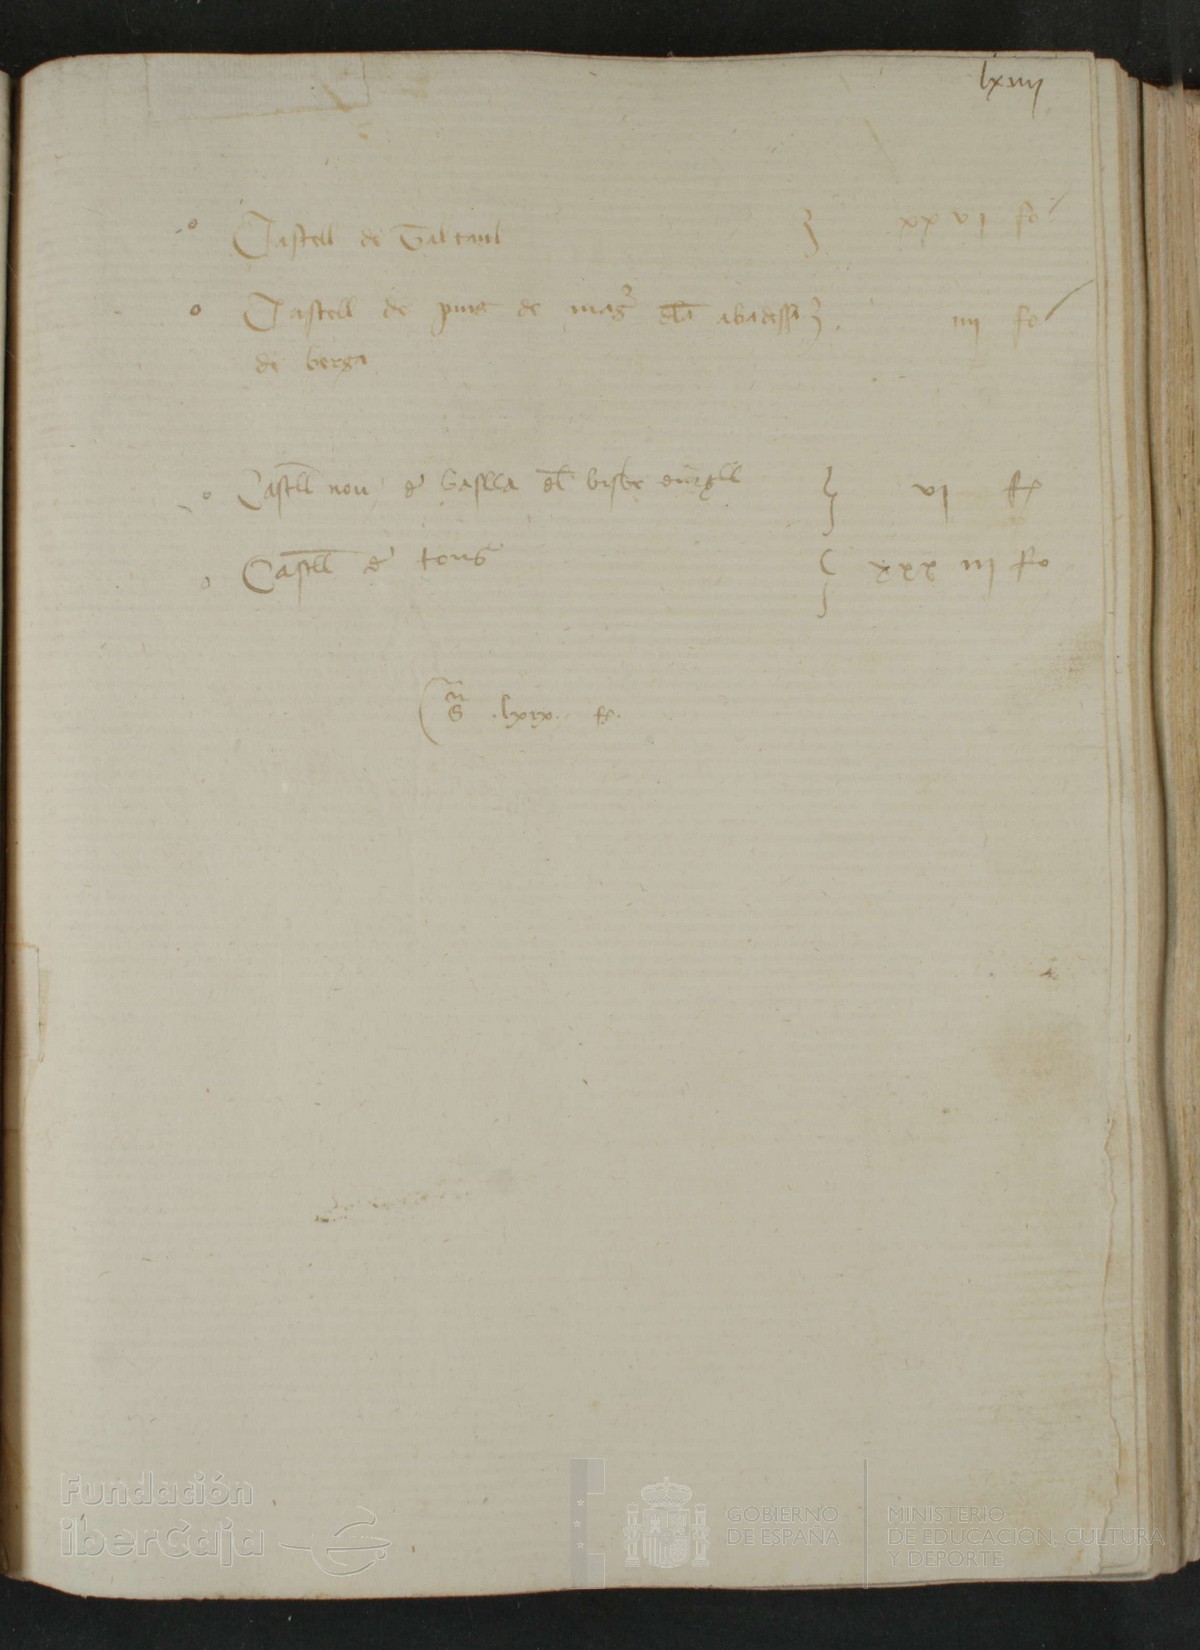 lxiiij
Castell de Galtaul } xxvi fo
Castell de puig de mag dla abadessa } iiij fo
de berga
Castell nou de basella del bisbe durgell } vi fo
Castell de tous } xxxiii fo
lxix fo
Fundación
iberCaja
GOBIERNO
DE ESPAÑA
MINISTERIO
DE EDUCACIÓN, CULTURA
Y DEPORTE